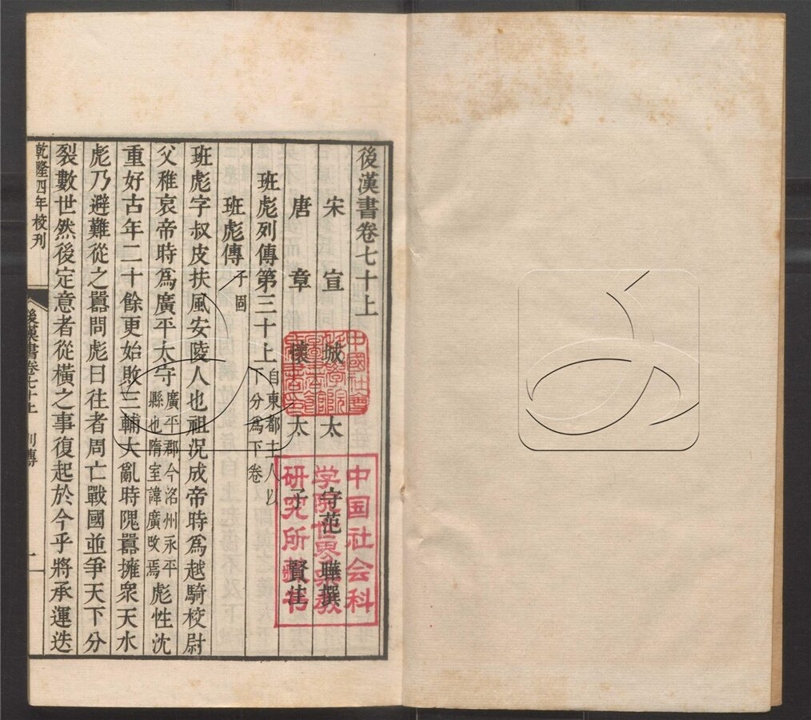 後漢書卷七十上
宋宣城太守范曄撰
唐章懷太子賢注
班彪列傳第三十上 自東都主人以下分爲下卷
班彪傳 子固
班彪字叔皮扶風安陵人也祖況成帝時爲越騎校尉
父稚哀帝時爲廣平太守 廣平郡今洺州永平縣也隋室諱廣改焉 彪性沈
重好古年二十餘更始敗三輔大亂時隗囂擁衆天水
彪乃避難從之囂問彪曰往者周亡戰國並爭天下分
裂數世然後定意者從橫之事復起於今乎將承運迭
乾隆四年校刊
後漢書卷七十上 列傳 一
中国社会科
学院世界宗教
研究所藏书